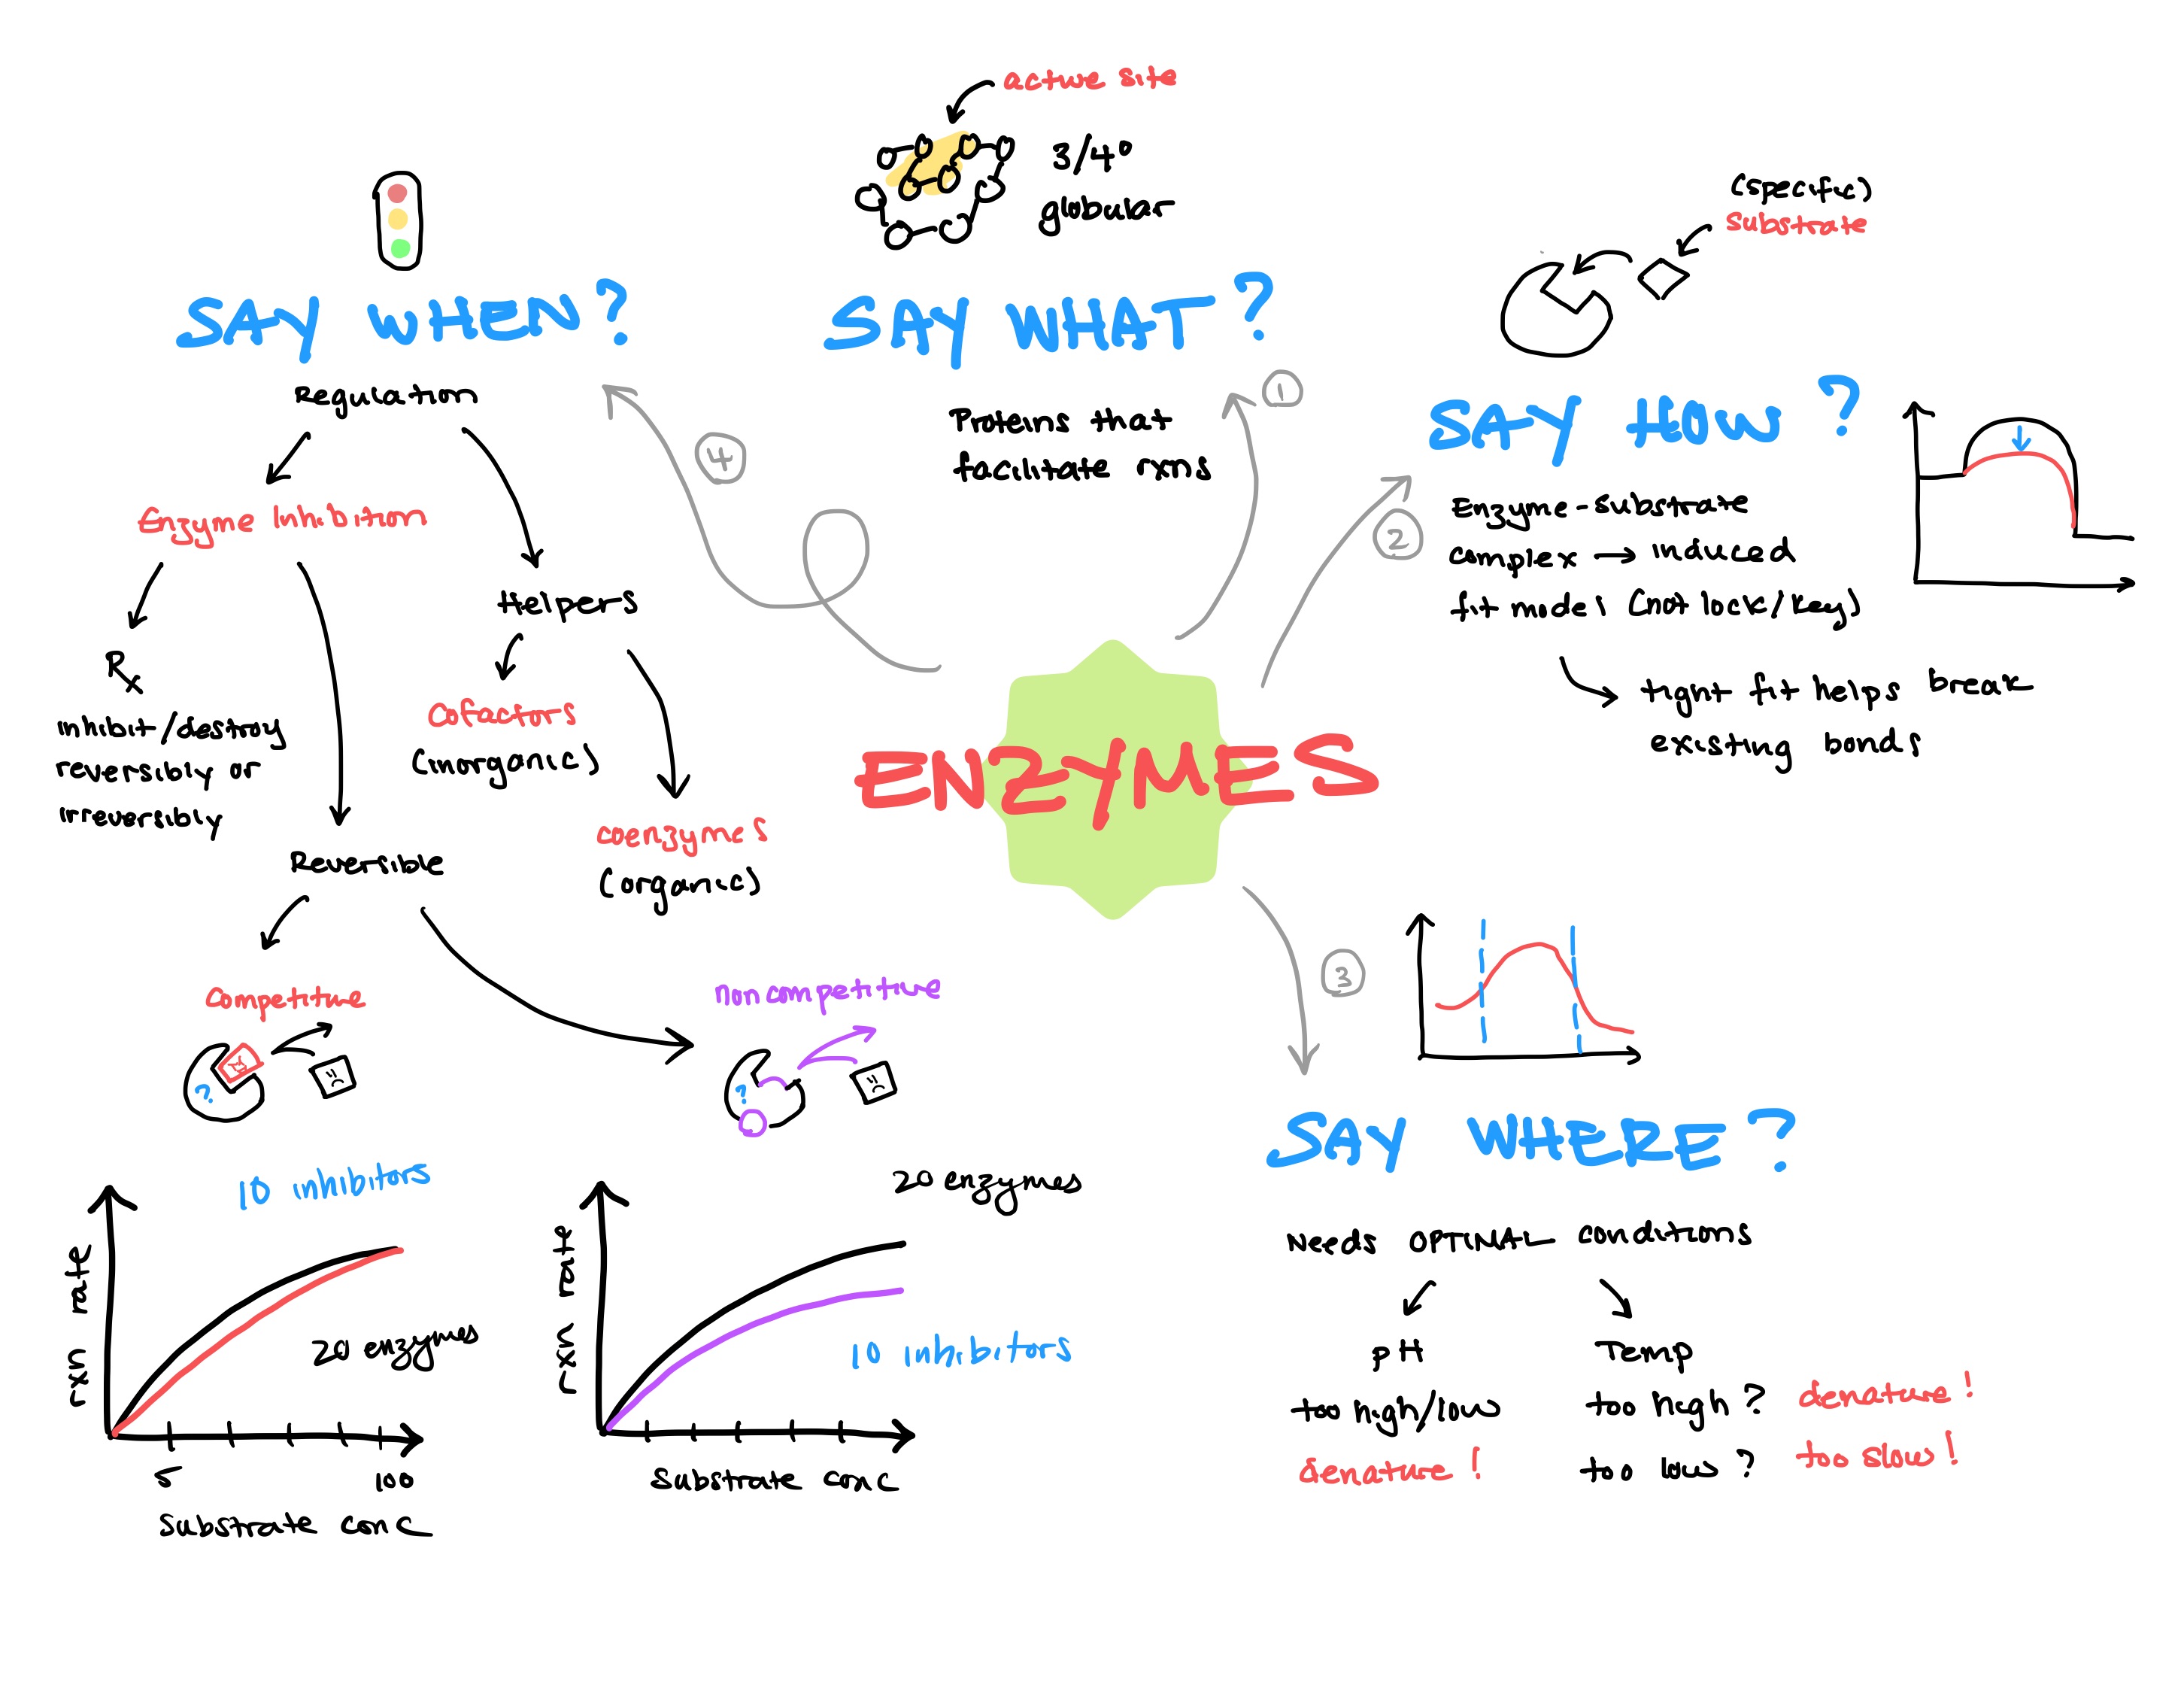 ENZYMES
1
SAY WHAT?
active site
3/4°
globular
Proteins that
facilitate rxns
2
SAY HOW?
(specific)
substrate
Enzyme-substrate
complex → induced
fit model (not lock/key)
tight fit helps break
existing bonds
3
SAY WHERE?
Needs OPTIMAL conditions
pH
too high/low
denature!
Temp
too high? denature!
too low? too slow!
4
SAY WHEN?
Regulation
Enzyme Inhibition
Rx
inhibit/destroy
reversibly or
irreversibly
Helpers
Cofactors
(inorganic)
coenzymes
(organic)
Reversible
Competitive
?
10 inhibitors
rxn rate
20 enzymes
5
100
Substrate conc
noncompetitive
?
20 enzymes
rxn rate
10 inhibitors
Substrate conc